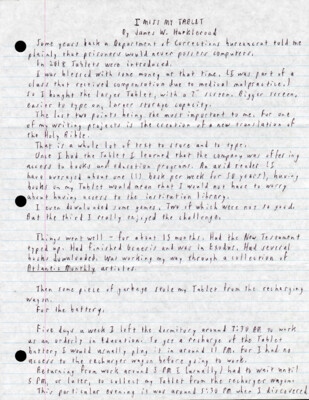 I MISS MY TABLET
By James W. Harkleroad
Some years back a Department of Corrections bureaucrat told me
plainly that prisoners would never possess computers.
In 2018 Tablets were introduced.
I was blessed with some money at that time. (I was part of a
class that received compensation due to medical malpractice.)
So I bought the larger Tablet, with a 7" screen. Bigger screen,
easier to type on, larger storage capacity.
The last two points being the most important to me. For one
of my writing projects is the creation of a new translation of
the Holy Bible.
That is a whole lot of text to store and to type.
Once I had the Tablet I learned that the company was offering
access to books and education programs. An avid reader (I
have averaged about one (1) book per week for 50 years), having
books on my Tablet would mean that I would not have to worry
about having access to the institution library.
I even downloaded some games. Two of which were not so good.
But the third I really enjoyed the challenge.
Things went well - for about 15 months. Had the New Testament
typed up. Had finished Genesis and was in Exodus. Had several
books downloaded. Was working my way through a collection of
Atlantic Monthly articles.
Then some piece of garbage stole my Tablet from the recharging
wagon.
For the battery.
Five days a week I left the dormitory around 7:30 AM to work
as an orderly in Education. To get a recharge of the Tablet
battery I would usually plug it in around 11 PM. For I had no
access to the recharger wagon before going to work.
Returning from work around 3 PM I (usually) had to wait until
5 PM, or later, to collect my Tablet from the recharger wagon.
This particular evening is was around 5:30 PM when I discovered